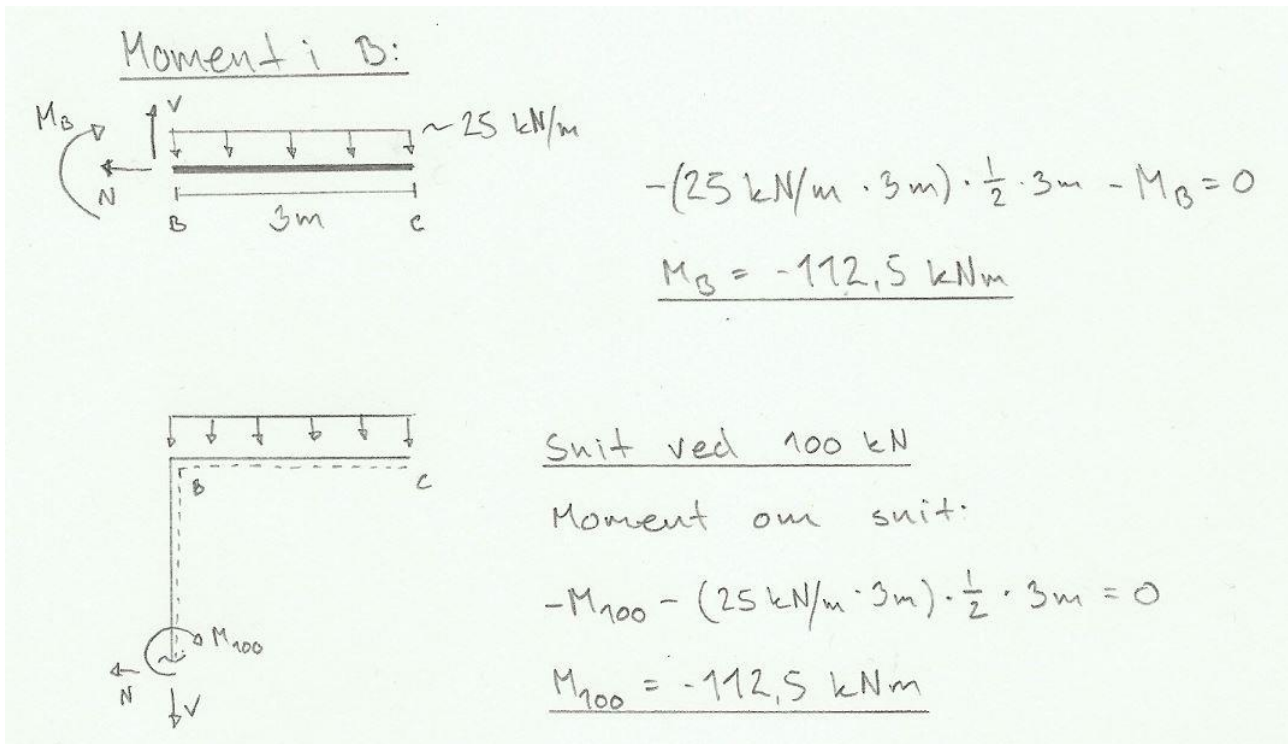 Moment i B:
M_B
V
~ 25 kN/m
N
B 3m C
-(25 kN/m · 3m) · 1/2 · 3m - M_B = 0
M_B = -112,5 kNm
B
C
Snit ved 100 kN
Moment om snit:
-M_100 - (25 kN/m · 3m) · 1/2 · 3m = 0
M_100
N
V
M_100 = -112,5 kNm